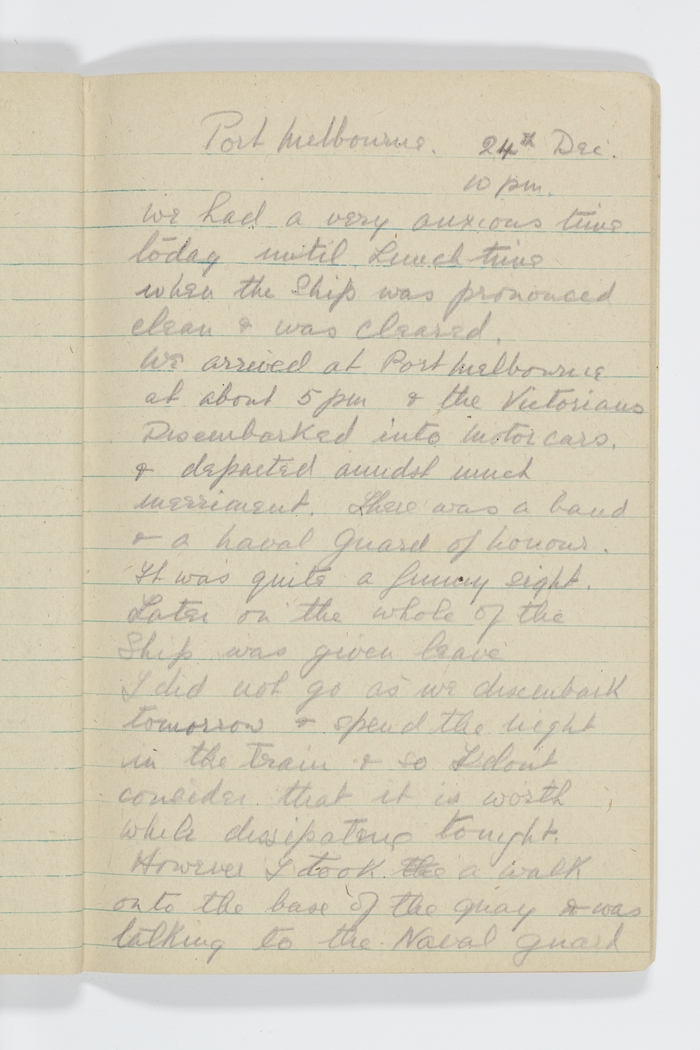 Port Melbourne. 24th Dec.
10 pm.
We had a very anxious time
today until Lunch time
when the Ship was pronounced
clean & was cleared.
We arrived at Port Melbourne
at about 5 pm & the Victorians
Disembarked into motor cars.
& departed amidst much
merriment. There was a band
& a naval guard of honour.
It was quite a funny sight.
Later on the whole of the
Ship was given leave
I did not go as we disembark
tomorrow & spend the night
in the train & so I dont
consider that it is worth
while dissipating tonight.
However I took the a walk
onto the base of the quay & was
talking to the Naval guard